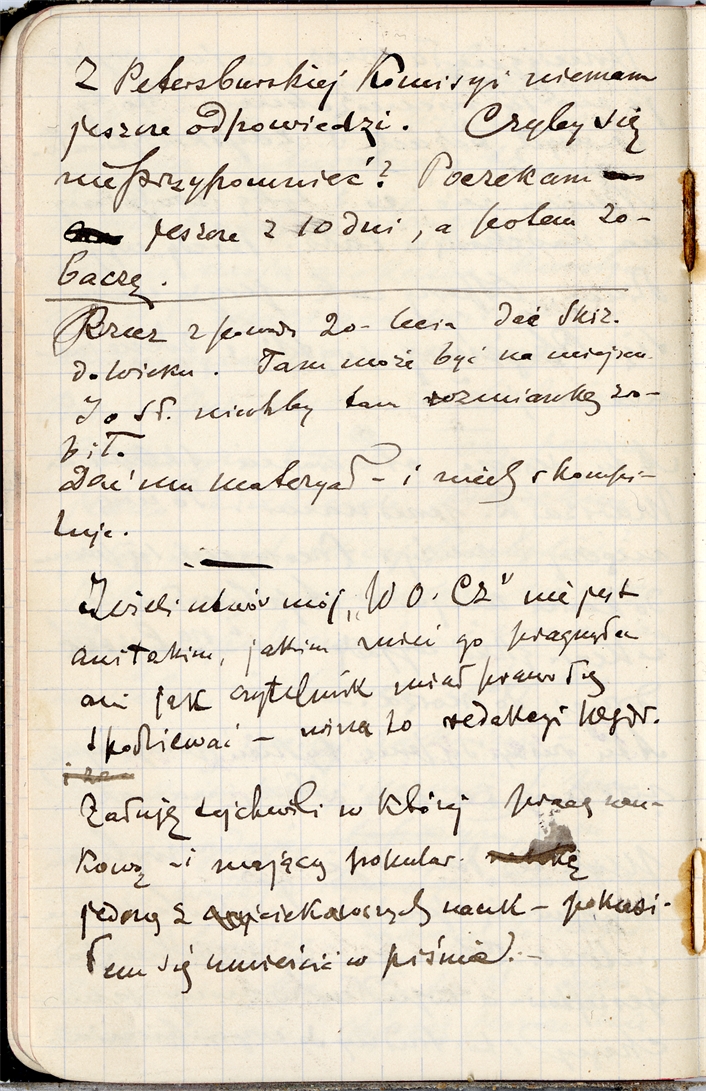 Z Petersburskiej Komisyi niemam
jeszcze odpowiedzi. Czyby się
nie przypomnieć? Poczekam
jeszcze z 10 dni, a potem zo-
baczę.
Rzecz z powodu 20-lecia dać Skiz.
do wieku. Tam może być na miejscu.
I o St. niechby tam wzmiankę zro-
bił.
Dać mu materyał - i niech skompi-
luje.
Jeżeli utwór mój „W O. CZ" nie jest
ani takim, jakim mieć go pragnąłem
ani jak czytelnik miał prawo się
spodziewać - wina to redakcyi Wędr.
Żałuję tej chwili w której pracę nau-
kową - i mającą popular.
jedną z nauk - pokusi-
łem się umieścić w piśmie. -